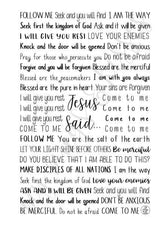 FOLLOW ME Seek and you will find I AM THE WAY
Seek first the kingdom of God Ask and it will be given
I WILL GIVE YOU REST LOVE YOUR ENEMIES
Knock and the door will be opened Don't be anxious
Pray for those who persecute you Do not be afraid
Forgive and you will be forgiven Blessed are the merciful
Blessed are the peacemakers I am with you always
Blessed are the pure in heart Your sins are Forgiven
I will give you rest Come to me
I will give you rest Jesus Come to me
I will give you rest Come to me
COME TO ME Said... Come to me
FOLLOW ME You are the salt of the earth
LET YOUR LIGHT SHINE BEFORE OTHERS Be merciful
DO YOU BELIEVE THAT I AM ABLE TO DO THIS?
MAKE DISCIPLES OF ALL NATIONS I am the way
Seek first the kingdom of God Love your enemies
ASK AND IT WILL BE GIVEN Seek and you will find
Knock and the door will be opened DON'T BE ANXIOUS
BE MERCIFUL Do not be afraid COME TO ME